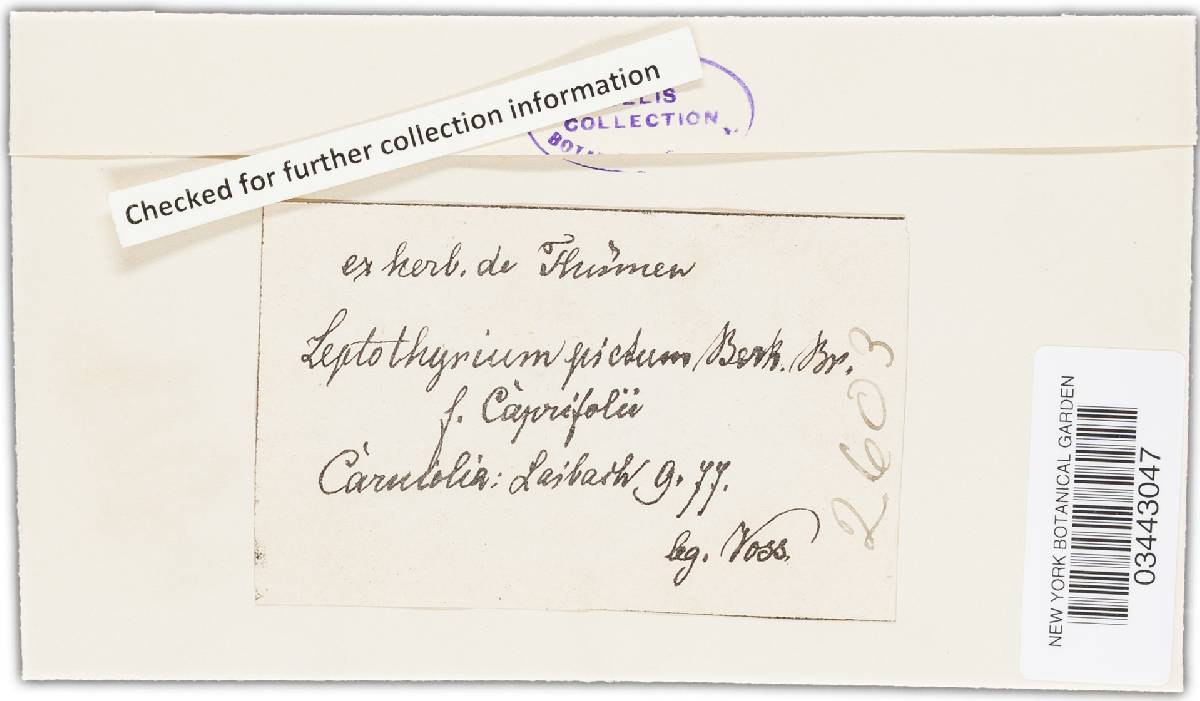 Checked for further collection information
COLLECTION
ex herb. de Thümen
Leptothyrium pictum Berk. Br.
f. Caprifolii
Carniolia: Laibach 9. 77.
leg. Voss.
2603
NEW YORK BOTANICAL GARDEN
03443047